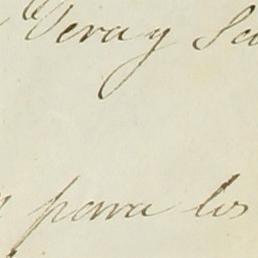 Vera y
para los